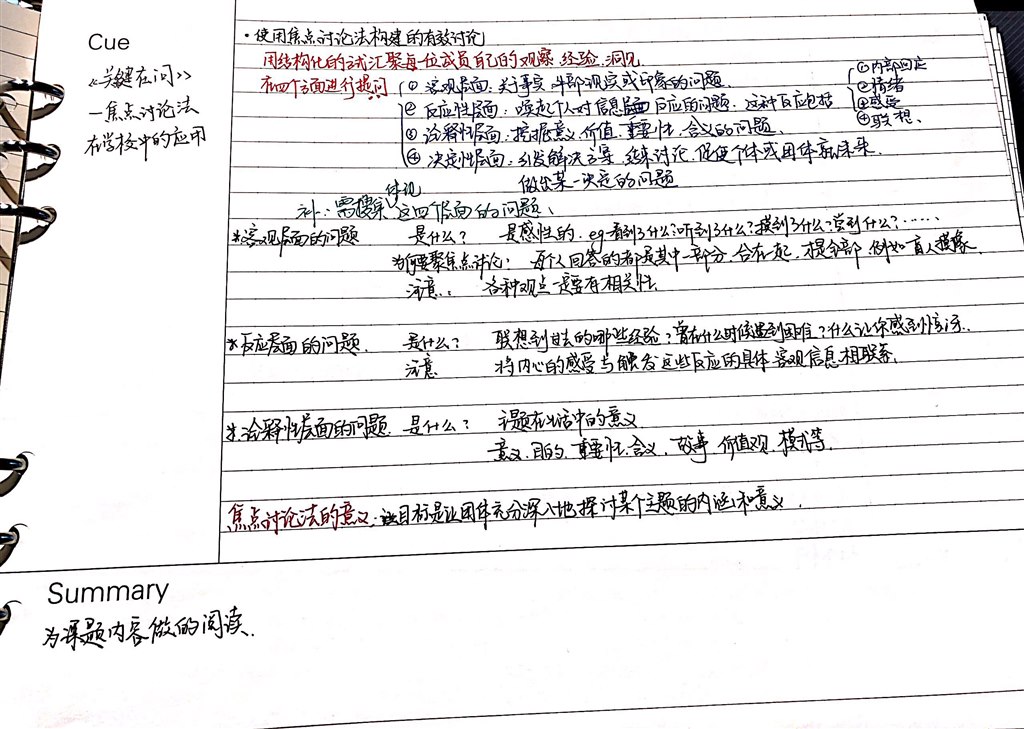 Cue
《关键在问》
—焦点讨论法
在学校中的应用
·使用焦点讨论法构建的有效讨论
用结构化的方式汇聚每一位成员自己的观察、经验、洞见
在四个方面进行提问
① 客观层面:关于事实、外部现实或印象的问题.
② 反应性层面:唤起个人对信息层面反应的问题.这种反应包括
①内部回应
②情绪
③感受
④联想.
③ 诠释性层面:挖掘意义、价值、重要性、含义的问题.
④ 决定性层面:引发解决方案、结束讨论、促使个体或团体就未来
做出某一决定的问题
补:需要 体现 这四个层面的问题、
*客观层面的问题 是什么? 是感性的. eg看到了什么?听到了什么?摸到了什么?尝到什么?……
为何要聚焦点讨论: 每个人回答的都是其中一部分,合在一起,才是全部,例如盲人摸象.
注意.. 各种观点一定要有相关性.
*反应层面的问题. 是什么? 联想到过去的哪些经验?曾在什么时候遇到困难?什么让你感到惊讶..
注意 将内心的感受与触发这些反应的具体客观信息相联系.
*诠释性层面的问题. 是什么? 主题在生活中的意义
意义、目的、重要性、含义、故事、价值观、模式等.
焦点讨论法的意义: 目标是让团体充分深入地探讨某个主题的内涵和意义.
Summary
为课题内容做的阅读.